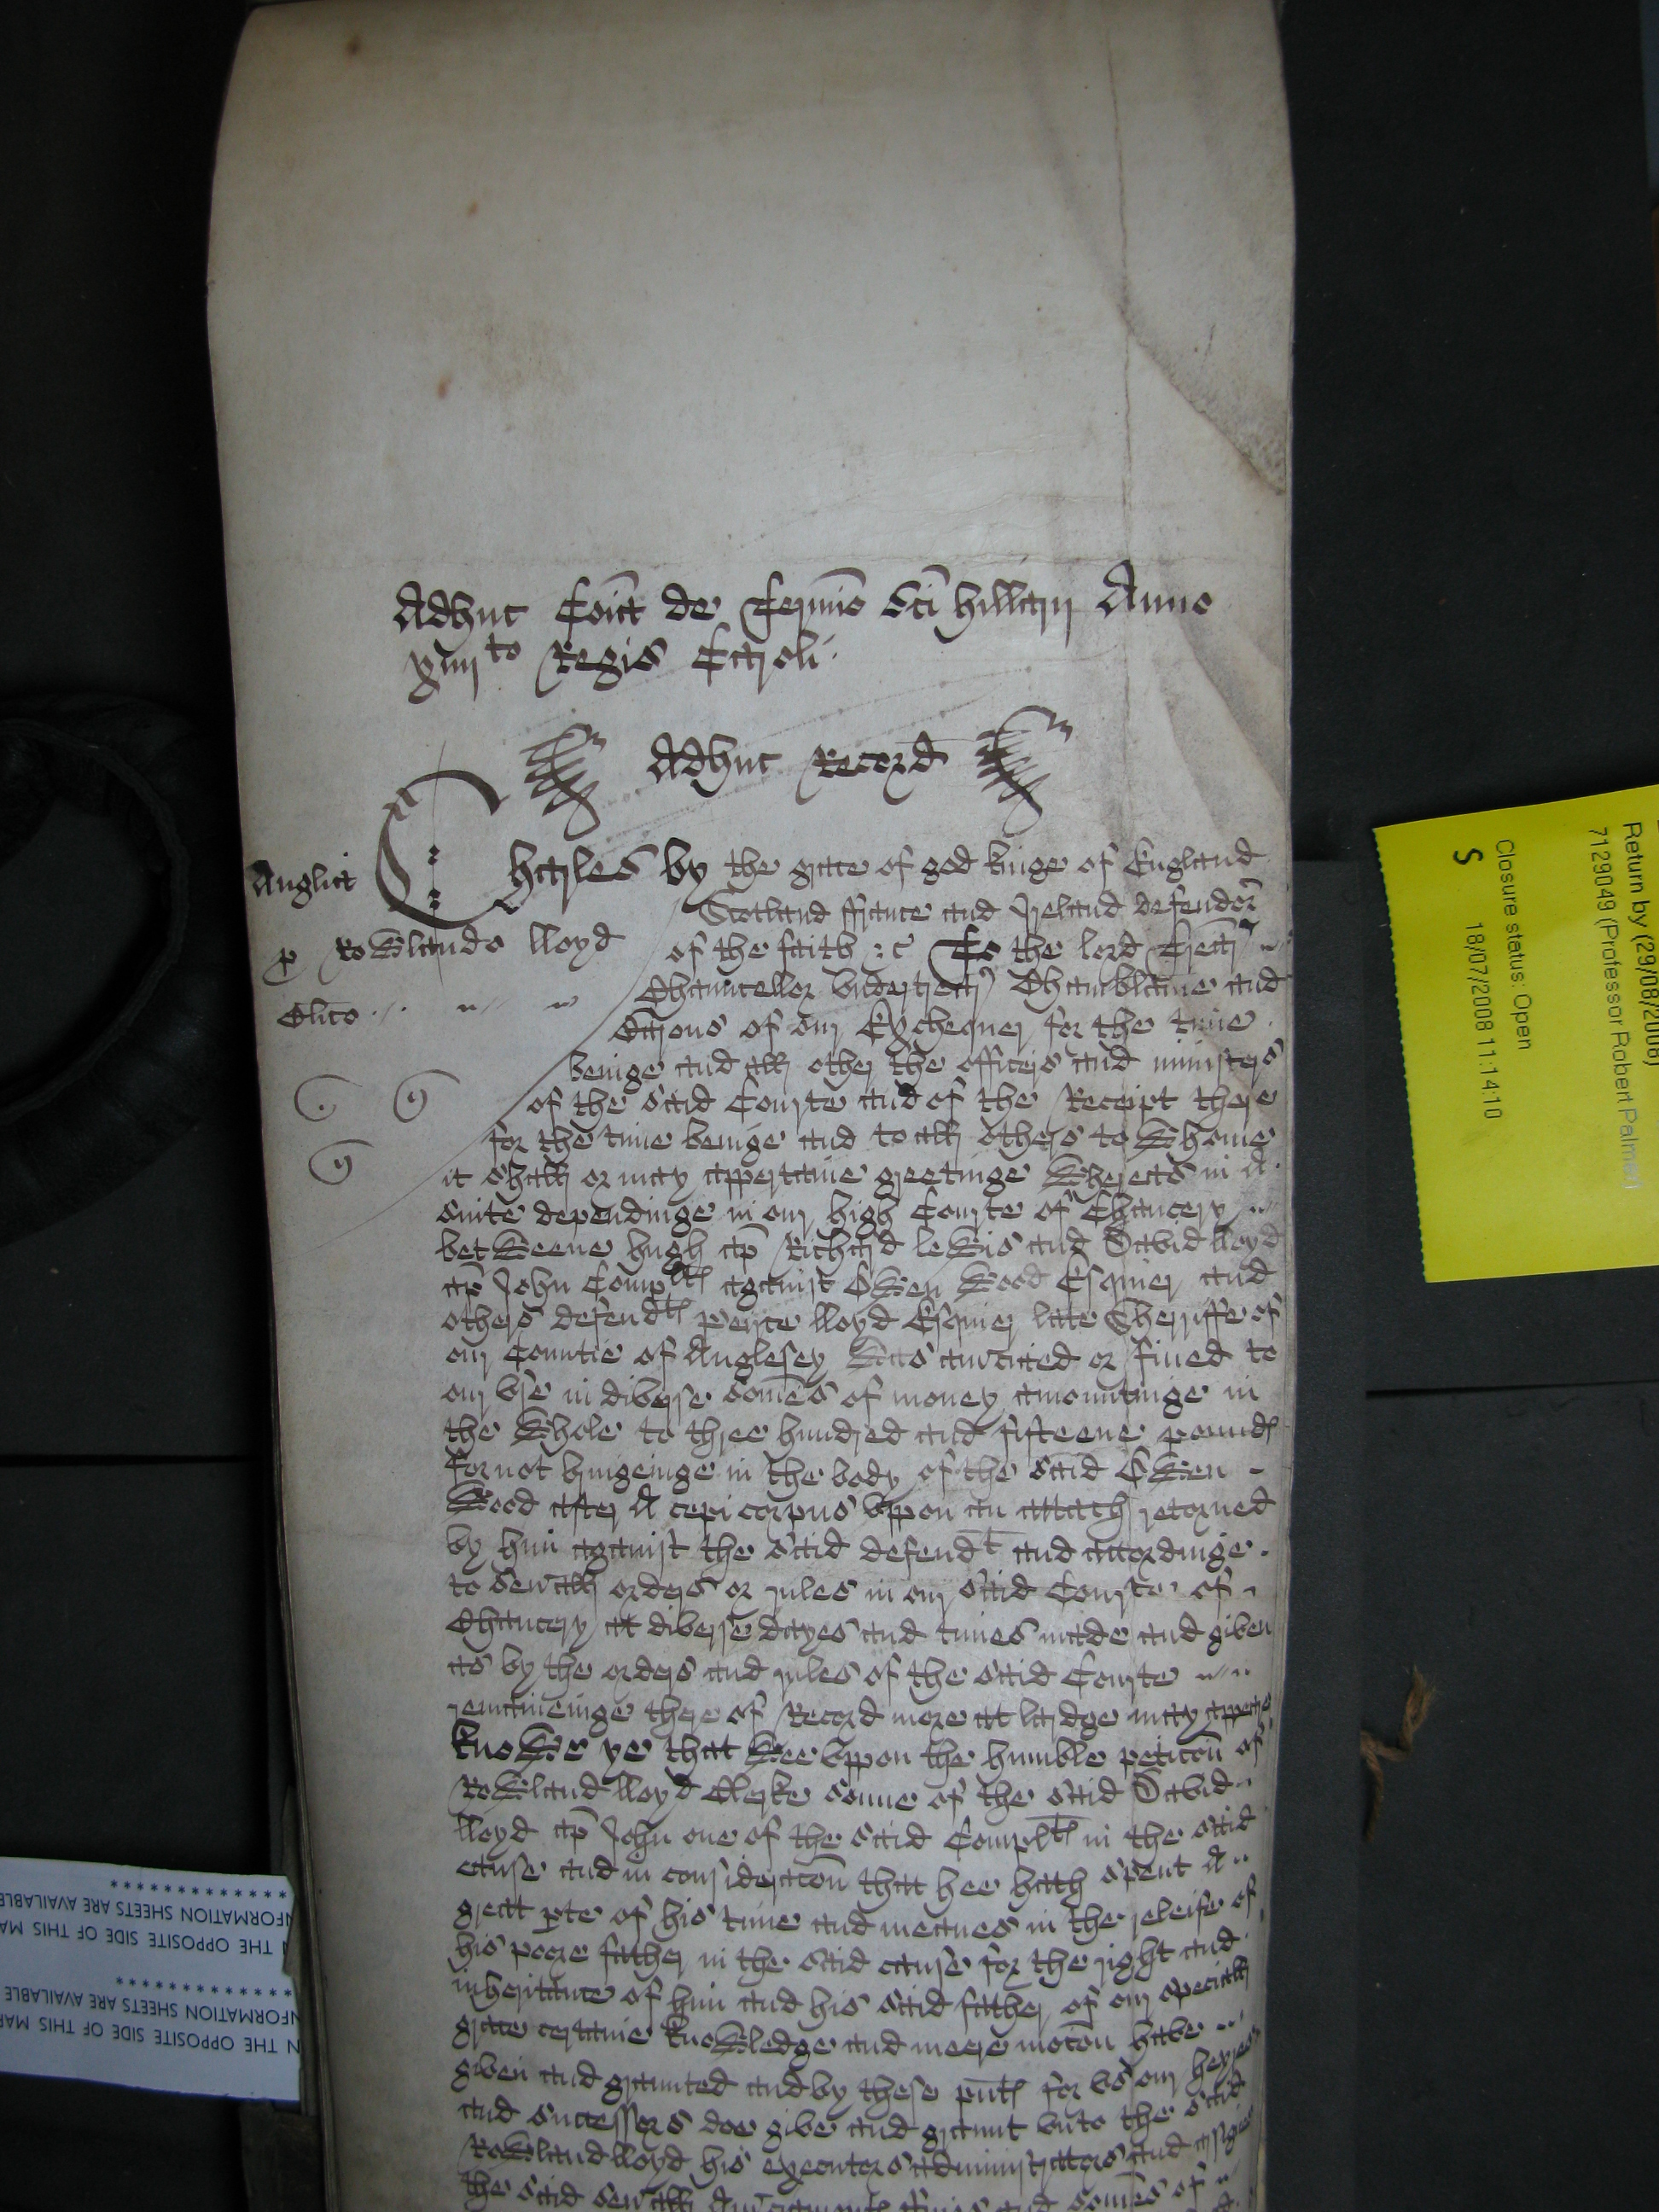 Adhuc Coīa de Termīo Scī hillarij Anno
xiiijto Regis Caroli
Adhuc Record
Anglia
Charles by the grace of god kinge of England
Scotland ffrance and Ireland defendor
p Rowlando lloyd
of the faith &c To the lord Trear
Clico
Chauncellor vndertrear Chamblaine and
Barons of our Excheqner for the time
beinge and all other the officers and ministers
of the said Courte and of the Receipt there
for the time beinge and to all others to whome
it shall or may appertaine greetinge Whereas in A
suite dependinge in our high Courte of Chancery
betweene hugh ap Richard lewis and David lloyd
ap John Complts against Owen Wood Esquier and
others defendts peirce lloyd Esquier late Sherriffe of
our Countie of Anglesey was amciated or fined to
our vse in diverse somēs of money amountinge in
the whole to three hundred and fifteene pounds
for not bringeinge in the body of the said Owen
Wood after A cepi corpus vppon an attach retorned
by him against the said defendt and accordinge
to sevall orders or rules in our said Courte of
Chancery att diverse dayes and times made and given
as by the orders and rules of the said Courte
remaineinge there of Record more att lardge may appeare
knowe ye that wee vppon the humble peticōn of
Rowland lloyd Clerke sonne of the said David
lloyd ap John one of the said Complts in the said
cause and in consideracōn that hee hath spent A
great pte of his time and meanes in the releife of
his poore father in the said cause for the right and
inheritance of him and his said father of our speciall
grace certaine knowledge and meere mocōn have
given and graunted and by these pnts for vs our heyres
and successors doe give and graunt vnto the said
Rowland lloyd his executors administrators and assignes
the said sevall Amciaments fines and somēs of
Return by (29/08/2008)
7129049 (Professor Robert Palmer)
Closure status: Open
18/07/2008 11:14:10
S
N THE OPPOSITE SIDE OF THIS MA
NFORMATION SHEETS ARE AVAILABLE
************
N THE OPPOSITE SIDE OF THIS MA
NFORMATION SHEETS ARE AVAILABLE
************